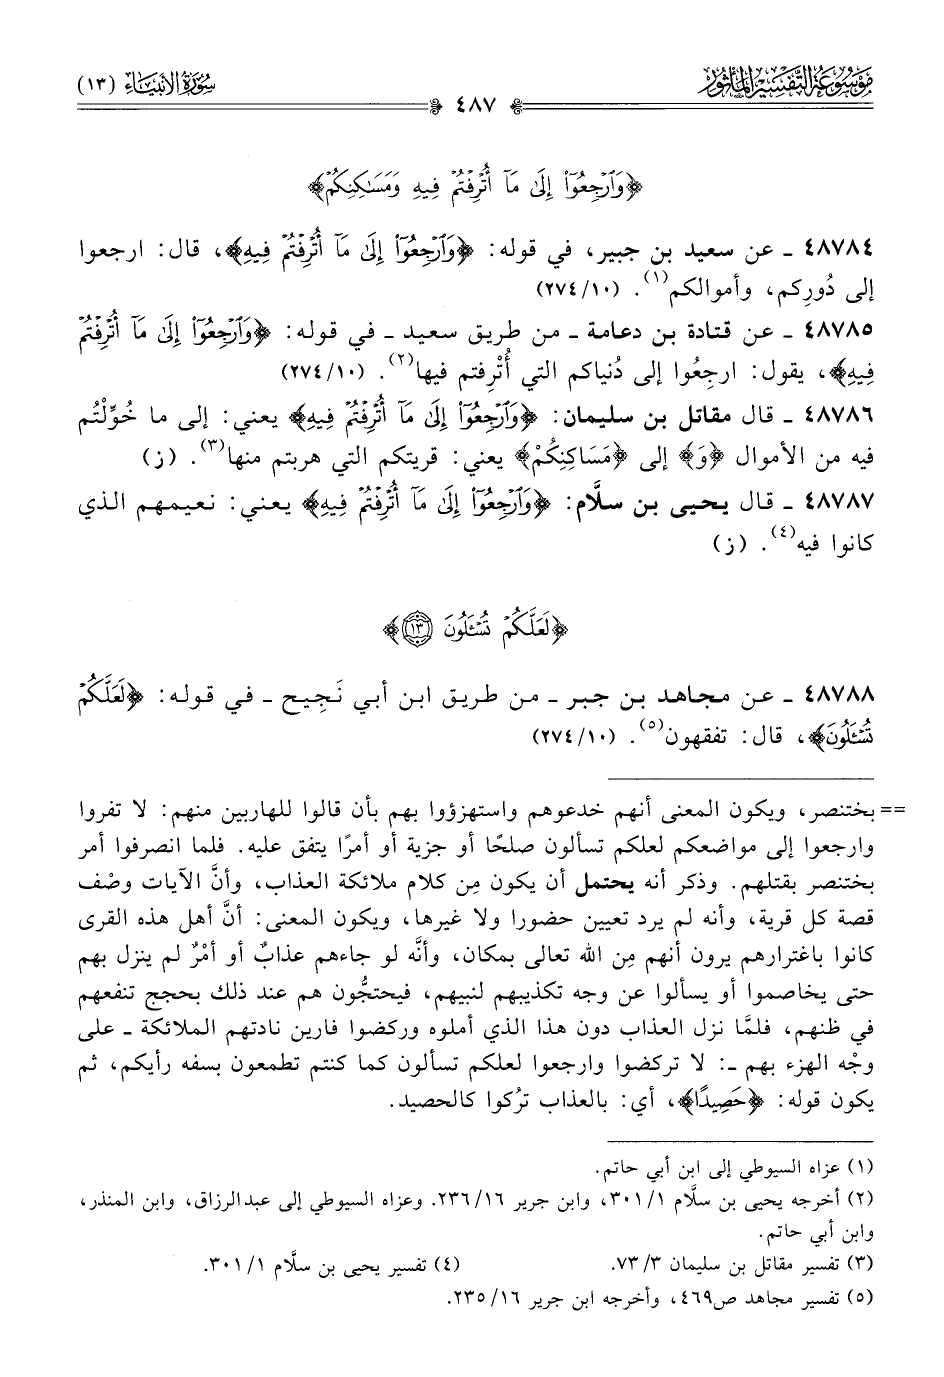 موسوعة التفسير المأثور
سورة الأنبياء (١٣)
٤٨٧
﴿وَٱرْجِعُوٓا۟ إِلَىٰ مَآ أُتْرِفْتُمْ فِيهِ وَمَسَـٰكِنِكُمْ﴾
٤٨٧٨٤ ـ عن سعيد بن جبير، في قوله: ﴿وَٱرْجِعُوٓا۟ إِلَىٰ مَآ أُتْرِفْتُمْ فِيهِ﴾، قال: ارجعوا
إلى دُورِكم، وأموالكم(١). (٢٧٤/١٠)
٤٨٧٨٥ ـ عن قتادة بن دعامة ـ من طريق سعيد ـ في قوله: ﴿وَٱرْجِعُوٓا۟ إِلَىٰ مَآ أُتْرِفْتُمْ
فِيهِ﴾، يقول: ارجِعُوا إلى دُنياكم التي أُتْرِفتم فيها(٢). (٢٧٤/١٠)
٤٨٧٨٦ ـ قال مقاتل بن سليمان: ﴿وَٱرْجِعُوٓا۟ إِلَىٰ مَآ أُتْرِفْتُمْ فِيهِ﴾ يعني: إلى ما خُوِّلْتُم
فيه من الأموال ﴿وَ﴾ إلى ﴿مَسَاكِنِكُمْ﴾ يعني: قريتكم التي هربتم منها(٣). (ز)
٤٨٧٨٧ ـ قال يحيى بن سلَّام: ﴿وَٱرْجِعُوٓا۟ إِلَىٰ مَآ أُتْرِفْتُمْ فِيهِ﴾ يعني: نعيمهم الذي
كانوا فيه(٤). (ز)
﴿لَعَلَّكُمْ تُسْـَٔلُونَ ١٣﴾
٤٨٧٨٨ ـ عن مجاهد بن جبر ـ من طريق ابن أبي نَجِيح ـ في قوله: ﴿لَعَلَّكُمْ
تُسْـَٔلُونَ﴾، قال: تفقهون(٥). (٢٧٤/١٠)
== بختنصر، ويكون المعنى أنهم خدعوهم واستهزؤوا بهم بأن قالوا للهاربين منهم: لا تفروا
وارجعوا إلى مواضعكم لعلكم تسألون صلحًا أو جزية أو أمرًا يتفق عليه. فلما انصرفوا أمر
بختنصر بقتلهم. وذكر أنه يحتمل أن يكون مِن كلام ملائكة العذاب، وأنَّ الآيات وصْف
قصة كل قرية، وأنه لم يرد تعيين حضورا ولا غيرها، ويكون المعنى: أنَّ أهل هذه القرى
كانوا باغترارهم يرون أنهم مِن الله تعالى بمكان، وأنَّه لو جاءهم عذابٌ أو أمْرٌ لم ينزل بهم
حتى يخاصموا أو يسألوا عن وجه تكذيبهم لنبيهم، فيحتجُّون هم عند ذلك بحجج تنفعهم
في ظنهم، فلمَّا نزل العذاب دون هذا الذي أملوه وركضوا فارين نادتهم الملائكة ـ على
وجْه الهزء بهم ـ: لا تركضوا وارجعوا لعلكم تسألون كما كنتم تطمعون بسفه رأيكم، ثم
يكون قوله: ﴿حَصِيدًا﴾، أي: بالعذاب تُركوا كالحصيد.
(١) عزاه السيوطي إلى ابن أبي حاتم.
(٢) أخرجه يحيى بن سلَّام ٣٠١/١، وابن جرير ٢٣٦/١٦. وعزاه السيوطي إلى عبدالرزاق، وابن المنذر،
وابن أبي حاتم.
(٣) تفسير مقاتل بن سليمان ٧٣/٣.
(٤) تفسير يحيى بن سلَّام ٣٠١/١.
(٥) تفسير مجاهد ص٤٦٩، وأخرجه ابن جرير ٢٣٥/١٦.